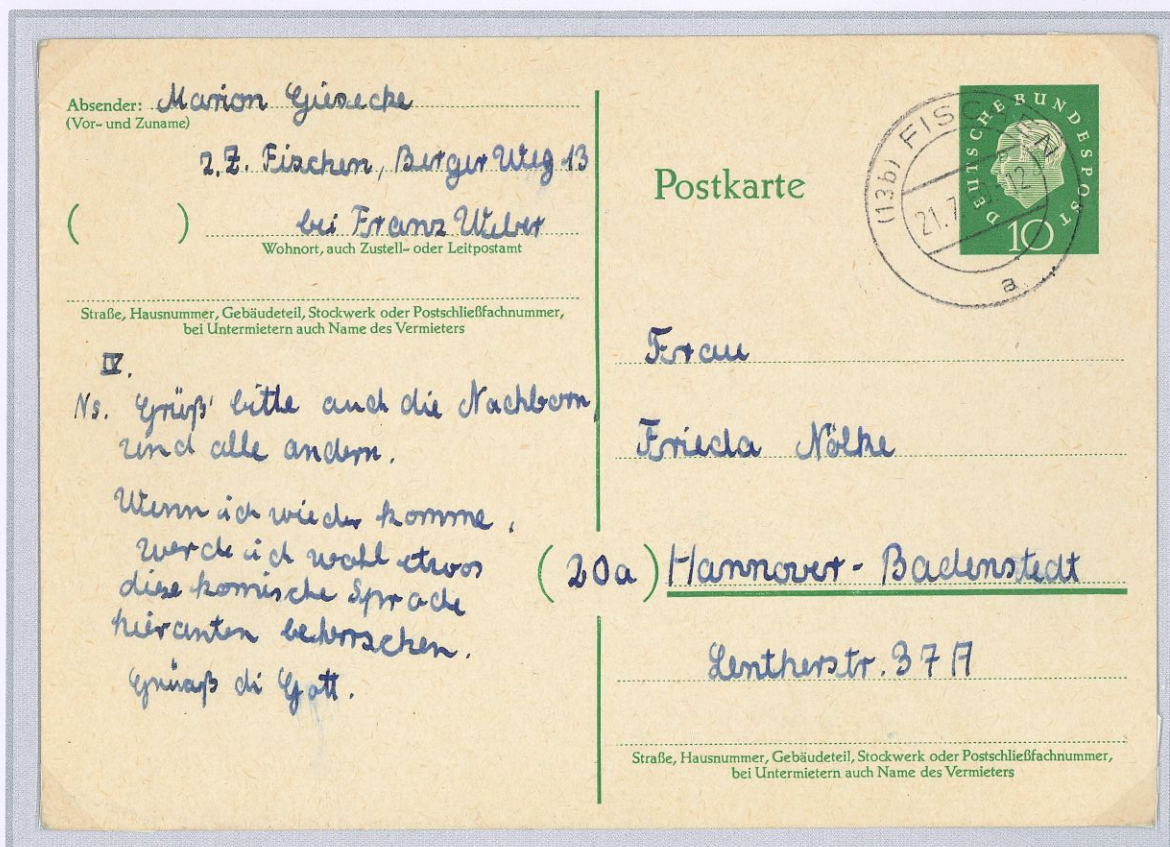 Absender: Marion Giesecke
(Vor- und Zuname)
z. Z. Fischen, Berger Weg 13
( ) bei Franz Weber
Wohnort, auch Zustell- oder Leitpostamt
Straße, Hausnummer, Gebäudeteil, Stockwerk oder Postschließfachnummer,
bei Untermietern auch Name des Vermieters
IV.
Ns. Grüß' bitte auch die Nachborn,
und alle andern.
Wenn ich wieder komme,
werde ich wohl etwas
diese komische Sprache
hieranten beherrschen.
Grüaß di Gott.
Postkarte
DEUTSCHE BUNDESPOST
10
(13b) FISCHEN
21.7. 12
a
Frau
Frieda Nölke
(20a) Hannover-Badenstedt
Lentherstr. 37A
Straße, Hausnummer, Gebäudeteil, Stockwerk oder Postschließfachnummer,
bei Untermietern auch Name des Vermieters